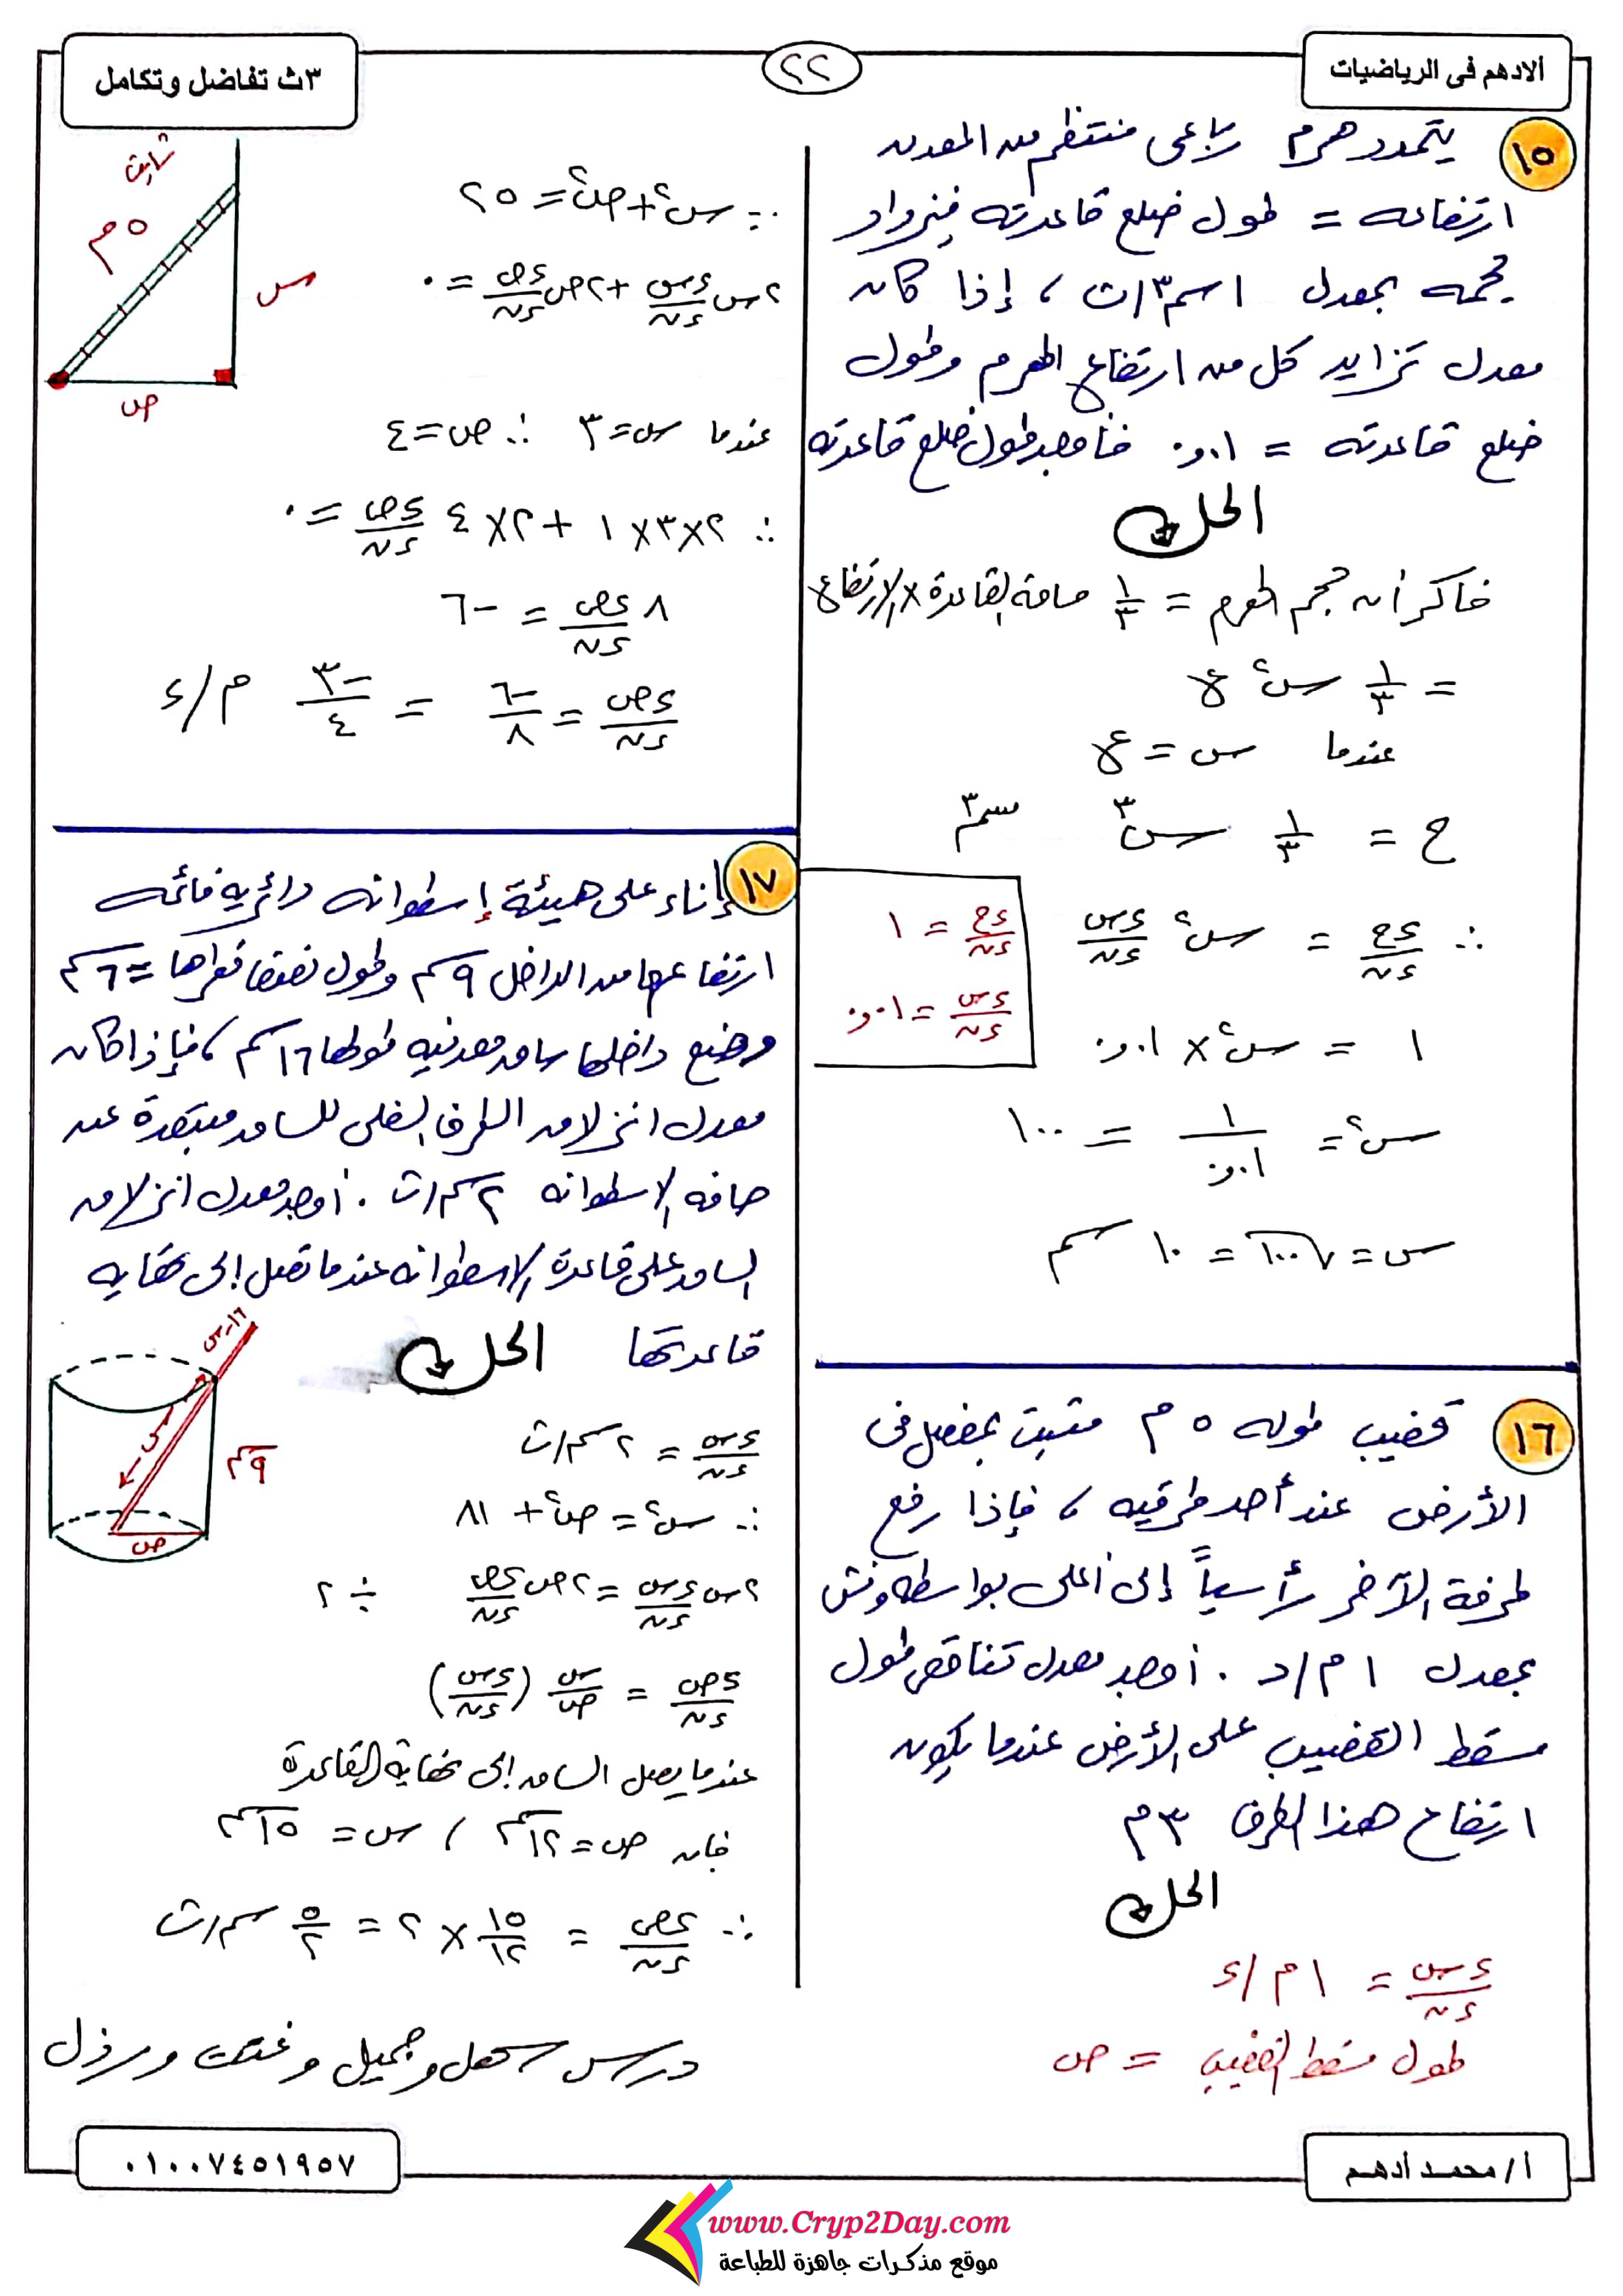 ألادهم فى الرياضيات
٢٢
٣ث تفاضل وتكامل
١٥ يتمدد هرم رباعى منتظم من المعدن
ارتفاعه = طول ضلع قاعدته فيزداد
حجمه بمعدل ١ سم٣/ث ، إذا كان
معدل تزايد كل من ارتفاع الهرم وطول
ضلع قاعدته = ٠,٠١ فأوجد طول ضلع قاعدته
الحل
فاكر أن حجم الهرم = ١/٣ مساحة القاعدة × الارتفاع
= ١/٣ س٢ ع
عندما س = ع
ح = ١/٣ س٣ سم٣
∴ ءح/ءن = س٢ ءس/ءن
ءح/ءن = ١
ءس/ءن = ٠,٠١
١ = س٢ × ٠,٠١
س٢ = ١/٠,٠١ = ١٠٠
س = √١٠٠ = ١٠ سم
١٦ قضيب طوله ٥ م مثبت بمفصل فى
الأرض عند أحد طرفيه ، فإذا رفع
طرفة الآخر رأسياً إلى أعلى بواسطه ونش
بمعدل ١ م/د . أوجد معدل تناقص طول
مسقط القضيب على الأرض عندما يكون
ارتفاع هذا الطرف ٣ م
الحل
ءس/ءن = ١ م/ء
طول مسقط القضيب = ص
ثابت
٥ م
س
ص
∵ س٢ + ص٢ = ٢٥
٢س ءس/ءن + ٢ص ءص/ءن = ٠
عندما س = ٣ ∴ ص = ٤
∴ ٢×٣×١ + ٢×٤ ءص/ءن = ٠
٨ ءص/ءن = -٦
ءص/ءن = -٦/٨ = -٣/٤ م/ء
١٧ إناء على هيئة إسطوانه دائريه قائمه
ارتفاعها من الداخل ٩سم وطول نصف قطرها = ٦سم
وضع داخلها ساق معدنيه طولها ١٦سم ، فإذا كان
معدل انزلاق الطرف السفلى للساق مبتعدة عن
حافه الاسطوانه ٢سم/ث . أوجد معدل انزلاق
الساق على قاعدة الاسطوانه عندما تصل إلى نهايه
قاعدتها الحل
١٦-س
س
٩سم
ص
ءس/ءن = ٢ سم/ث
∵ س٢ = ص٢ + ٨١
٢س ءس/ءن = ٢ص ءص/ءن ÷ ٢
ءص/ءن = س/ص (ءس/ءن)
عندما يصل الساق إلى نهاية القاعدة
فان ص = ١٢سم ، س = ١٥سم
∴ ءص/ءن = ١٥/١٢ × ٢ = ٥/٢ سم/ث
درس سهل وجميل وغتت ورزل
أ/ محمد أدهم
٠١٠٠٧٤٥١٩٥٧
www.Cryp2Day.com
موقع مذكرات جاهزة للطباعة